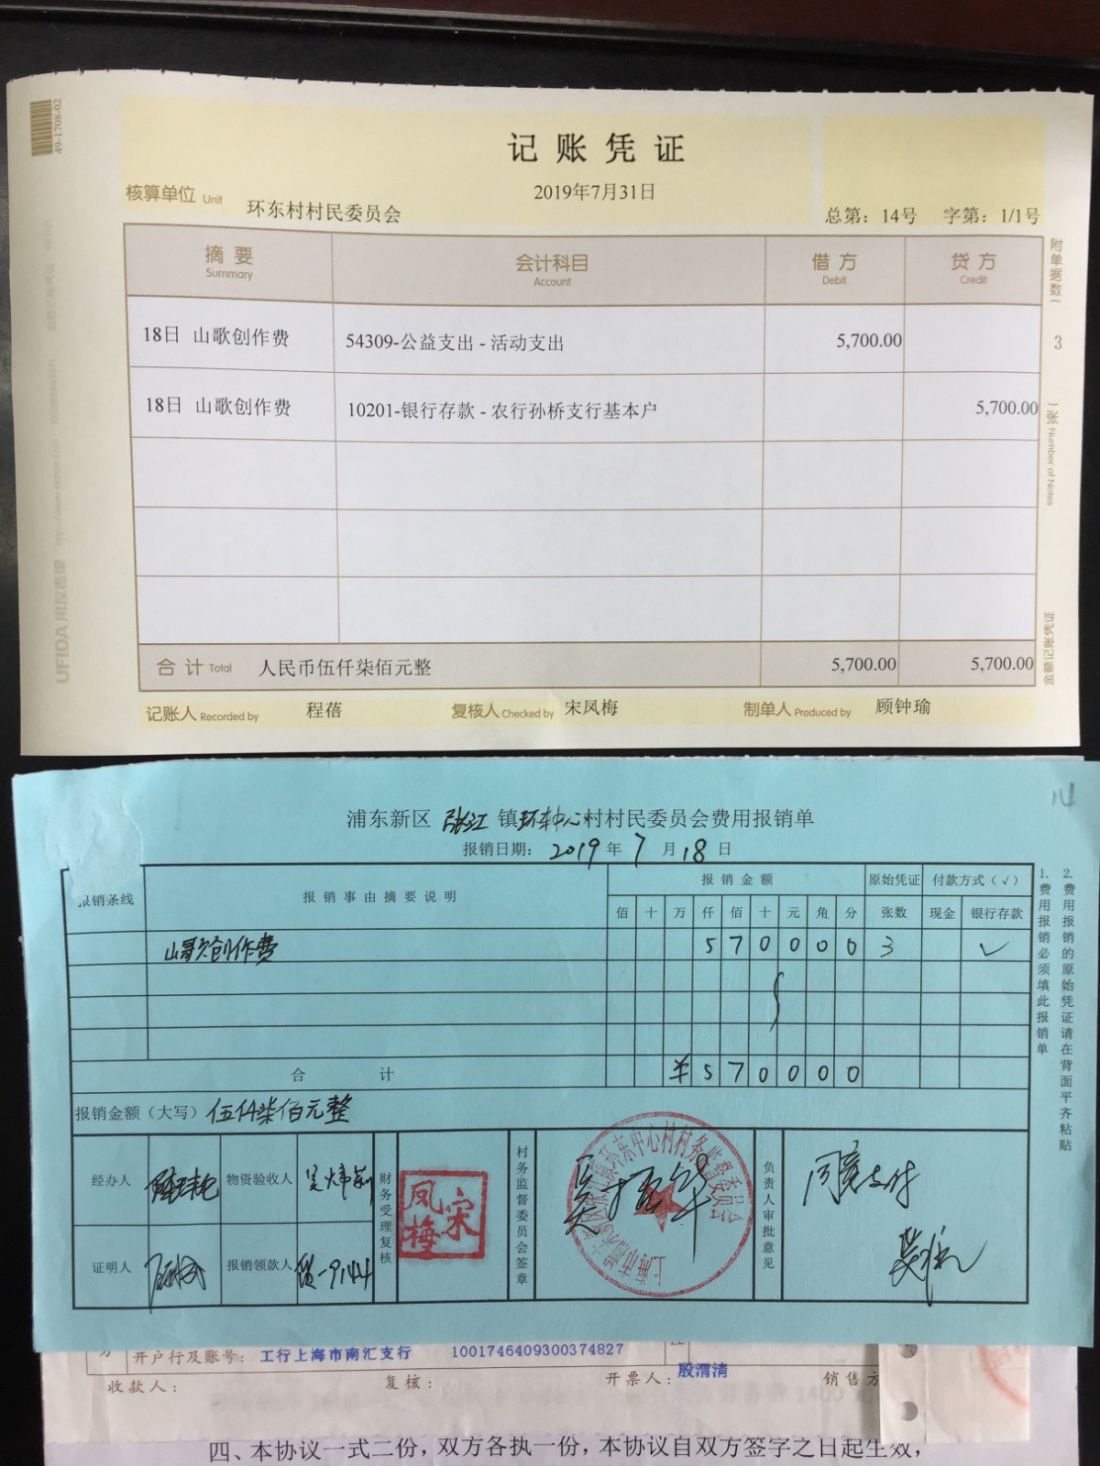 49-1708-02
记账凭证
2019年7月31日
核算单位 Unit 环东村村民委员会
总第：14号 字第：1/1号
摘要 会计科目 借方 贷方
Summary Account Debit Credit
18日 山歌创作费 54309-公益支出 - 活动支出 5,700.00
18日 山歌创作费 10201-银行存款 - 农行孙桥支行基本户 5,700.00
合计 Total 人民币伍仟柒佰元整 5,700.00 5,700.00
记账人 Recorded by 程蓓 复核人 Checked by 宋凤梅 制单人 Produced by 顾钟瑜
附单据数（ 3 张） Number of Notes
金额记账凭证
UFIDA 用友表单
浦东新区 张江 镇环东中心村村民委员会费用报销单
报销日期： 2019 年 7 月 18 日
报销条线 报销事由摘要说明 报销金额 原始凭证 付款方式（√）
佰 十 万 仟 佰 十 元 角 分 张数 现金 银行存款
山歌创作费 5 7 0 0 0 0 3 √
合计 ¥ 5 7 0 0 0 0
报销金额（大写） 伍仟柒佰元整
经办人 物资验收人 财务受理复核 宋凤梅 村务监督委员会签章 负责人审批意见 同意支付
证明人 报销领款人 贷-9144
1、费用报销必须填此报销单
2、费用报销的原始凭证请在背面平齐粘贴
开户行及账号： 工行上海市南汇支行 1001746409300374827
收款人： 复核： 开票人： 殷渭清 销售方
四、本协议一式二份，双方各执一份，本协议自双方签字之日起生效，